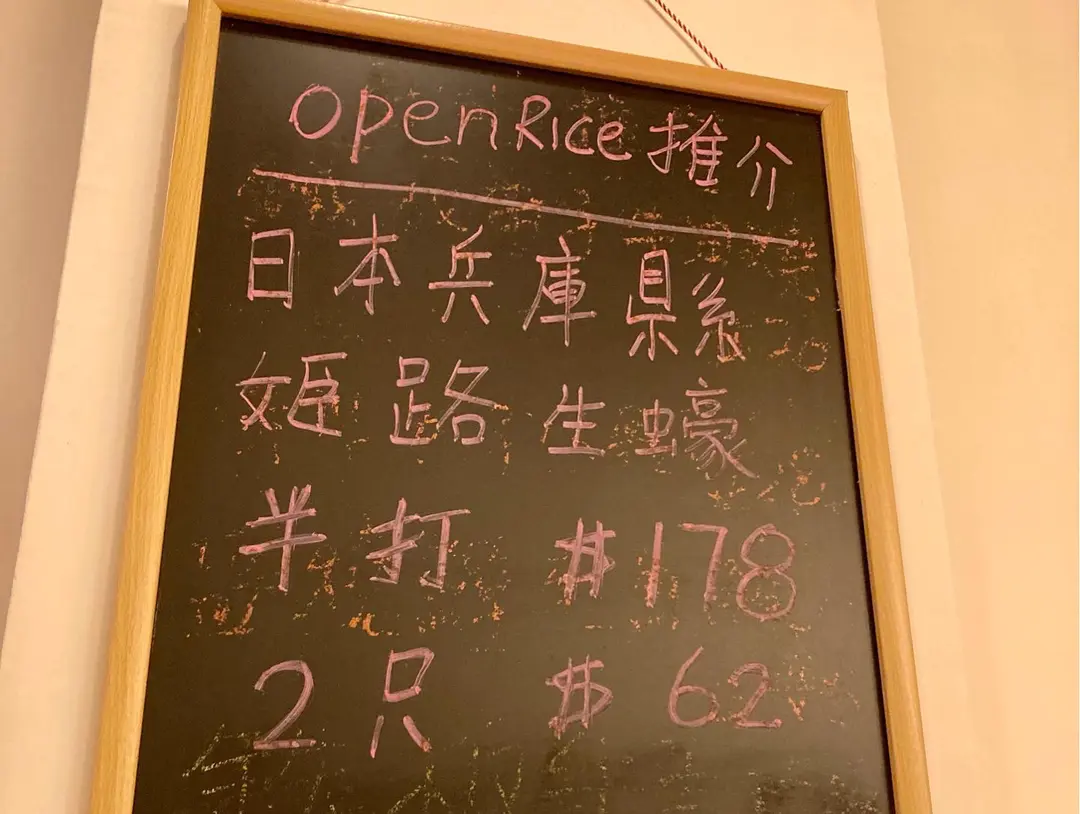 OpenRice 推介
日本兵庫縣
姫路生蠔
半打 $178
2只 $62